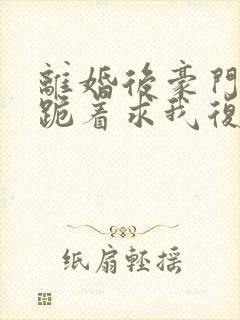 離婚後豪門
跪着求我復
纸扇轻摇